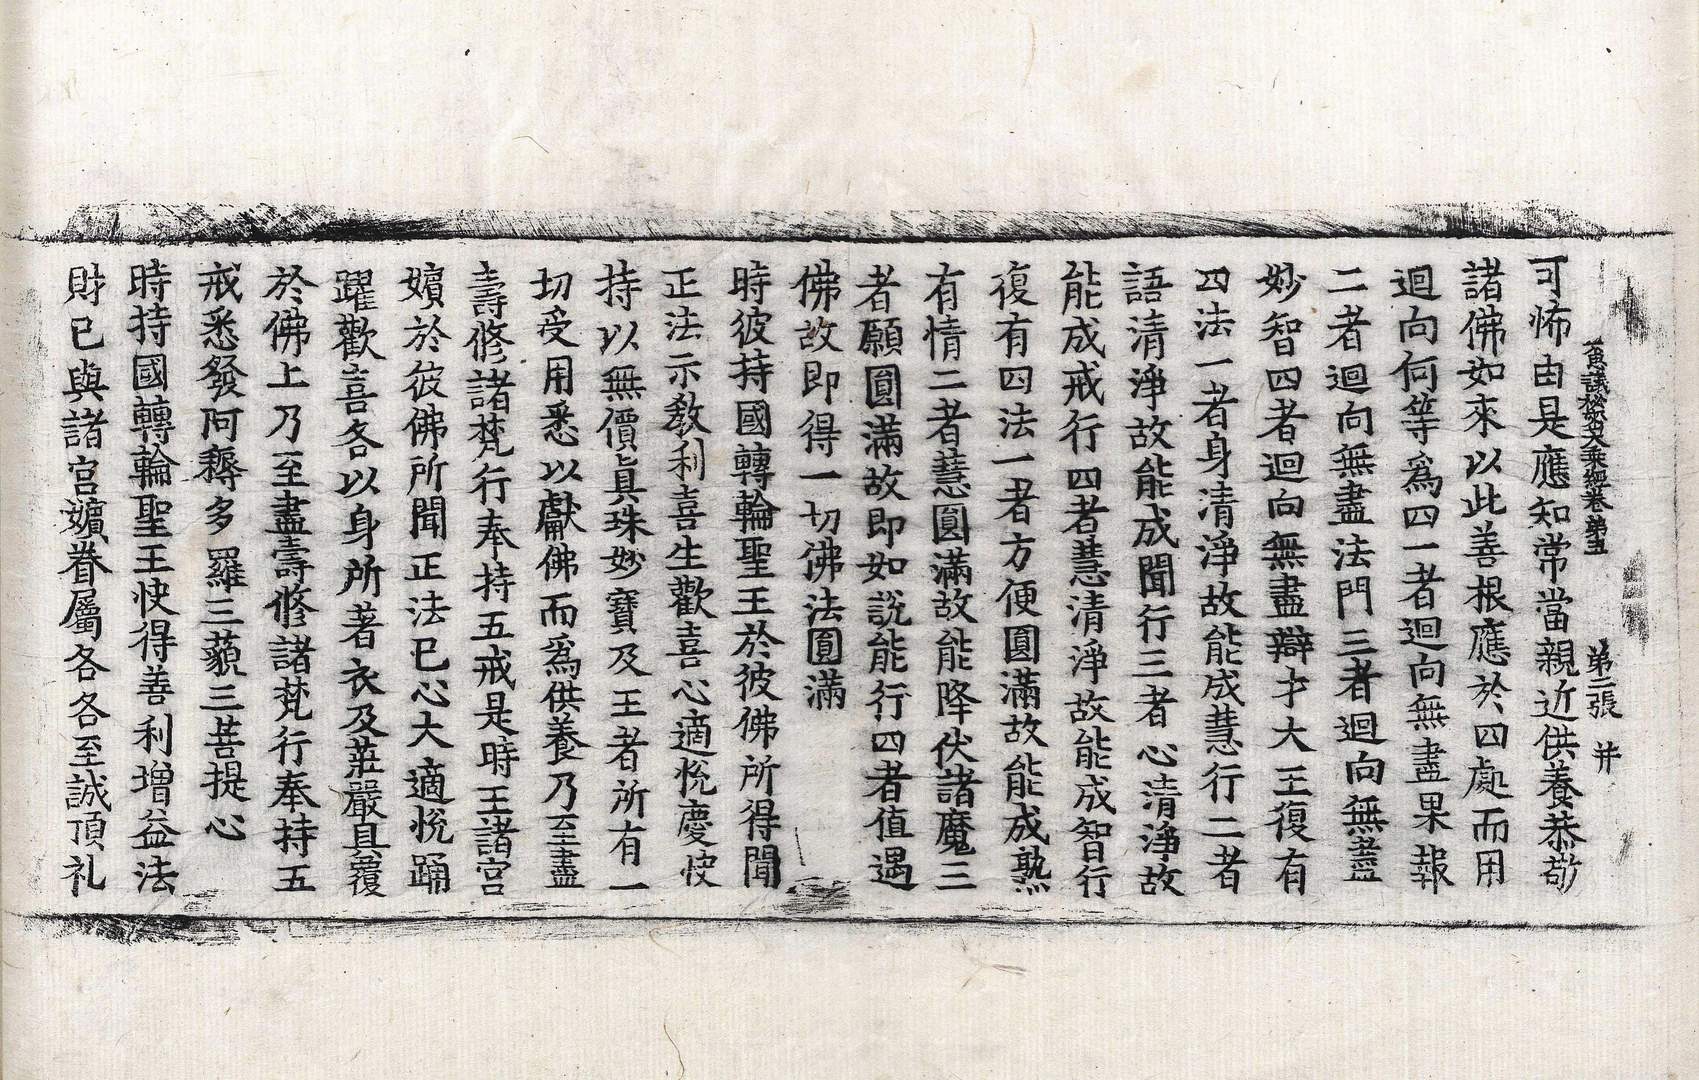 菩薩藏大乘經卷第五 第二張 并
可怖由是應知常當親近供養恭敬
諸佛如來以此善根應於四處而用
迴向何等爲四一者迴向無盡果報
二者迴向無盡法門三者迴向無盡
妙智四者迴向無盡辯才大王復有
四法一者身清淨故能成慧行二者
語清淨故能成聞行三者心清淨故
能成戒行四者慧清淨故能成智行
復有四法一者方便圓滿故能成熟
有情二者慧圓滿故能降伏諸魔三
者願圓滿故即如說能行四者值遇
佛故即得一切佛法圓滿
時彼持國轉輪聖王於彼佛所得聞
正法示教利喜生歡喜心適悅慶快
持以無價真珠妙寶及王者所有一
切受用悉以獻佛而爲供養乃至盡
壽修諸梵行奉持五戒是時王諸宮
嬪於彼佛所聞正法已心大適悅踊
躍歡喜各以身所著衣及莊嚴具覆
於佛上乃至盡壽修諸梵行奉持五
戒悉發阿耨多羅三藐三菩提心
時持國轉輪聖王快得善利增益法
財已與諸宮嬪眷屬各各至誠頂礼